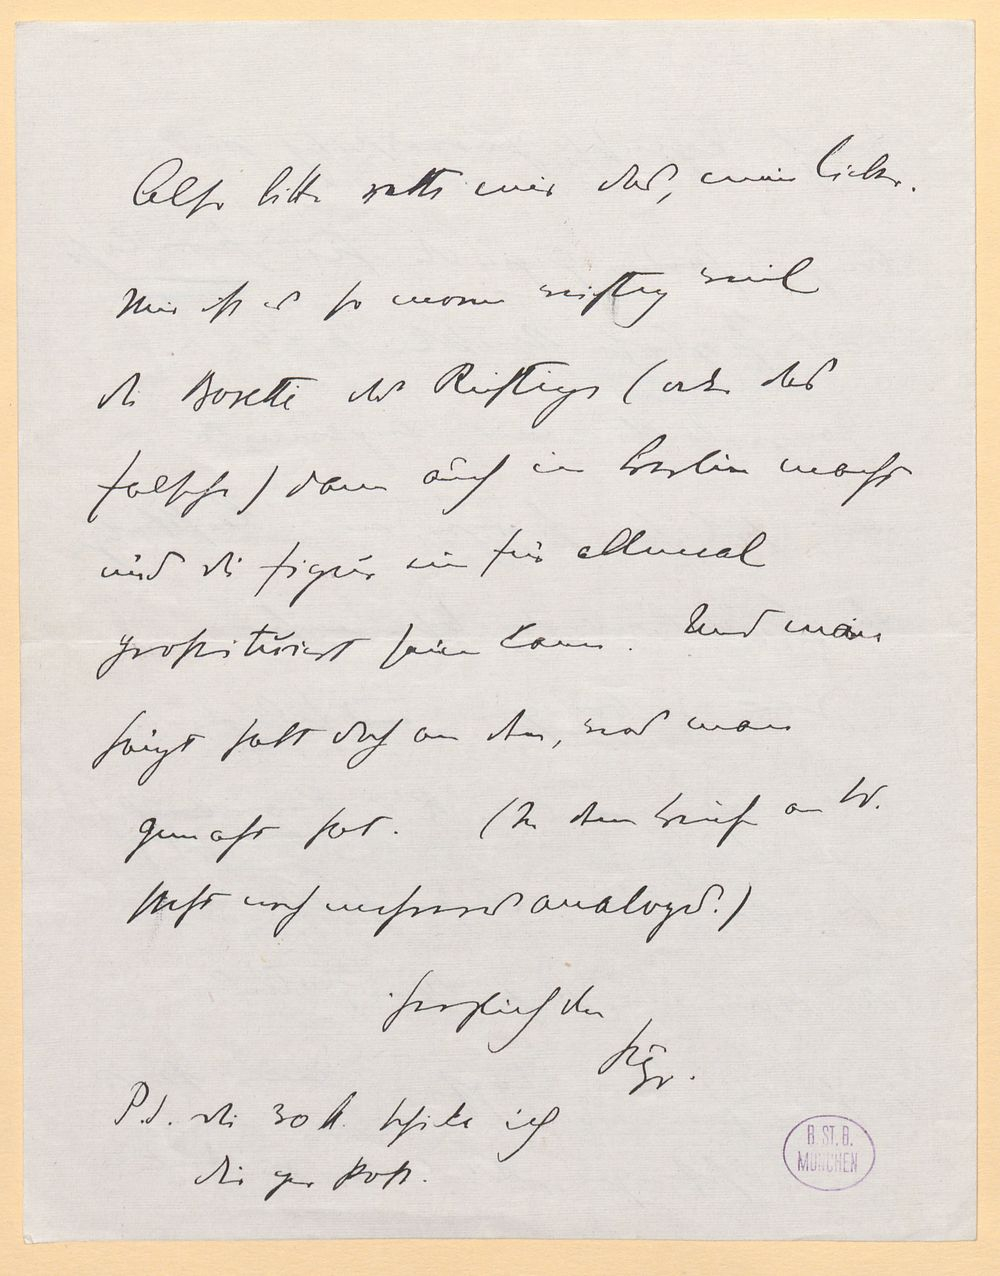 Also bitte rette mir das, mein Lieber.
Mir ist es so enorm wichtig weil
die Bosetti das Richtige (oder das
falsche) dann auch in Berlin macht
und die Figur ein für allemal
prostituiert sein kann. Und man
hängt halt doch an dem, was man
gemacht hat. (In dem Brief an W.
steht noch mehreres analoges.)
herzlich dein
Hugo.
P.S. die 30 M. schicke ich
dir per Post.
B. ST. B.
MÜNCHEN